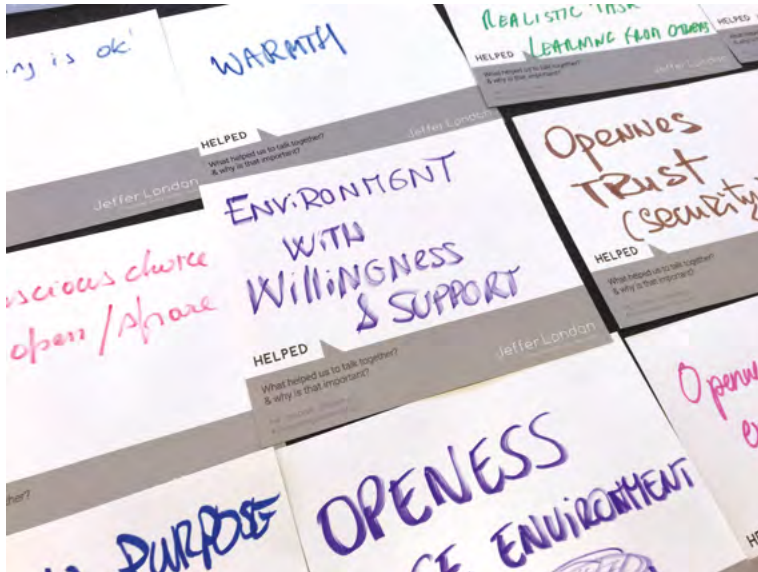 ng is ok'
WARMTH
HELPED
What helped us to talk together?
& why is that important?
Jeffer London
REALISTIC TASK
LEARNING FROM OTHERS
HELPED
What helped us to talk together?
& why is that important?
Jeffer London
Jeffer London
ENVIRONMENT
WITH
WILLINGNESS
& SUPPORT
HELPED
What helped us to talk together?
& why is that important?
Jeffer London
OPENNES
TRUST
(SECURITY)
HELPED
What helped us to talk together?
& why is that important?
scious choice
open / share
her?
PURPOSE
OPENESS
ENVIRONMENT
Openn